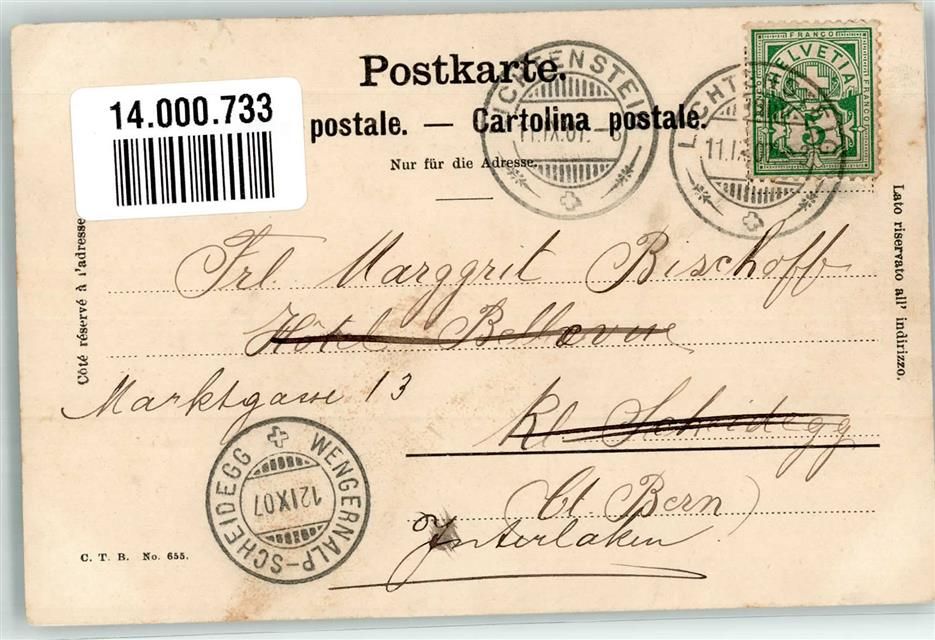 Postkarte.
14.000.733
postale. — Cartolina postale.
Nur für die Adresse.
LICHTENSTEIG
11.IX.07.–8
LICHTENSTEIG
11.IX.07.–8
FRANCO
HELVETIA
FRANCO
FRANCO
5
Côté réservé à l'adresse
Lato riservato all' indirizzo.
Frl. Marggrit Bischoff
Hôtel Bellevue
Marktgasse 13
Kl. Scheidegg
Ct. Bern
Interlaken
WENGERNALP-SCHEIDEGG
12IX07
C. T. B. No. 655.